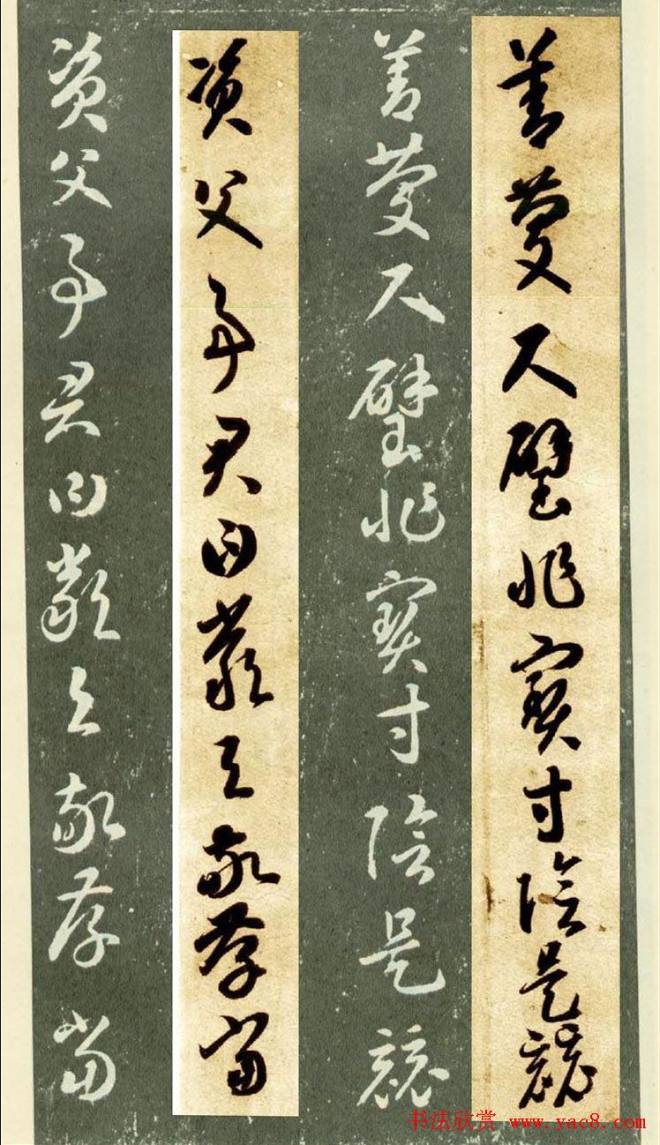 善慶尺璧非寶寸陰是競
善慶尺璧非寶寸陰是競
資父事君曰嚴與敬孝當
資父事君曰嚴與敬孝當
书法欣赏 www.yac8.com